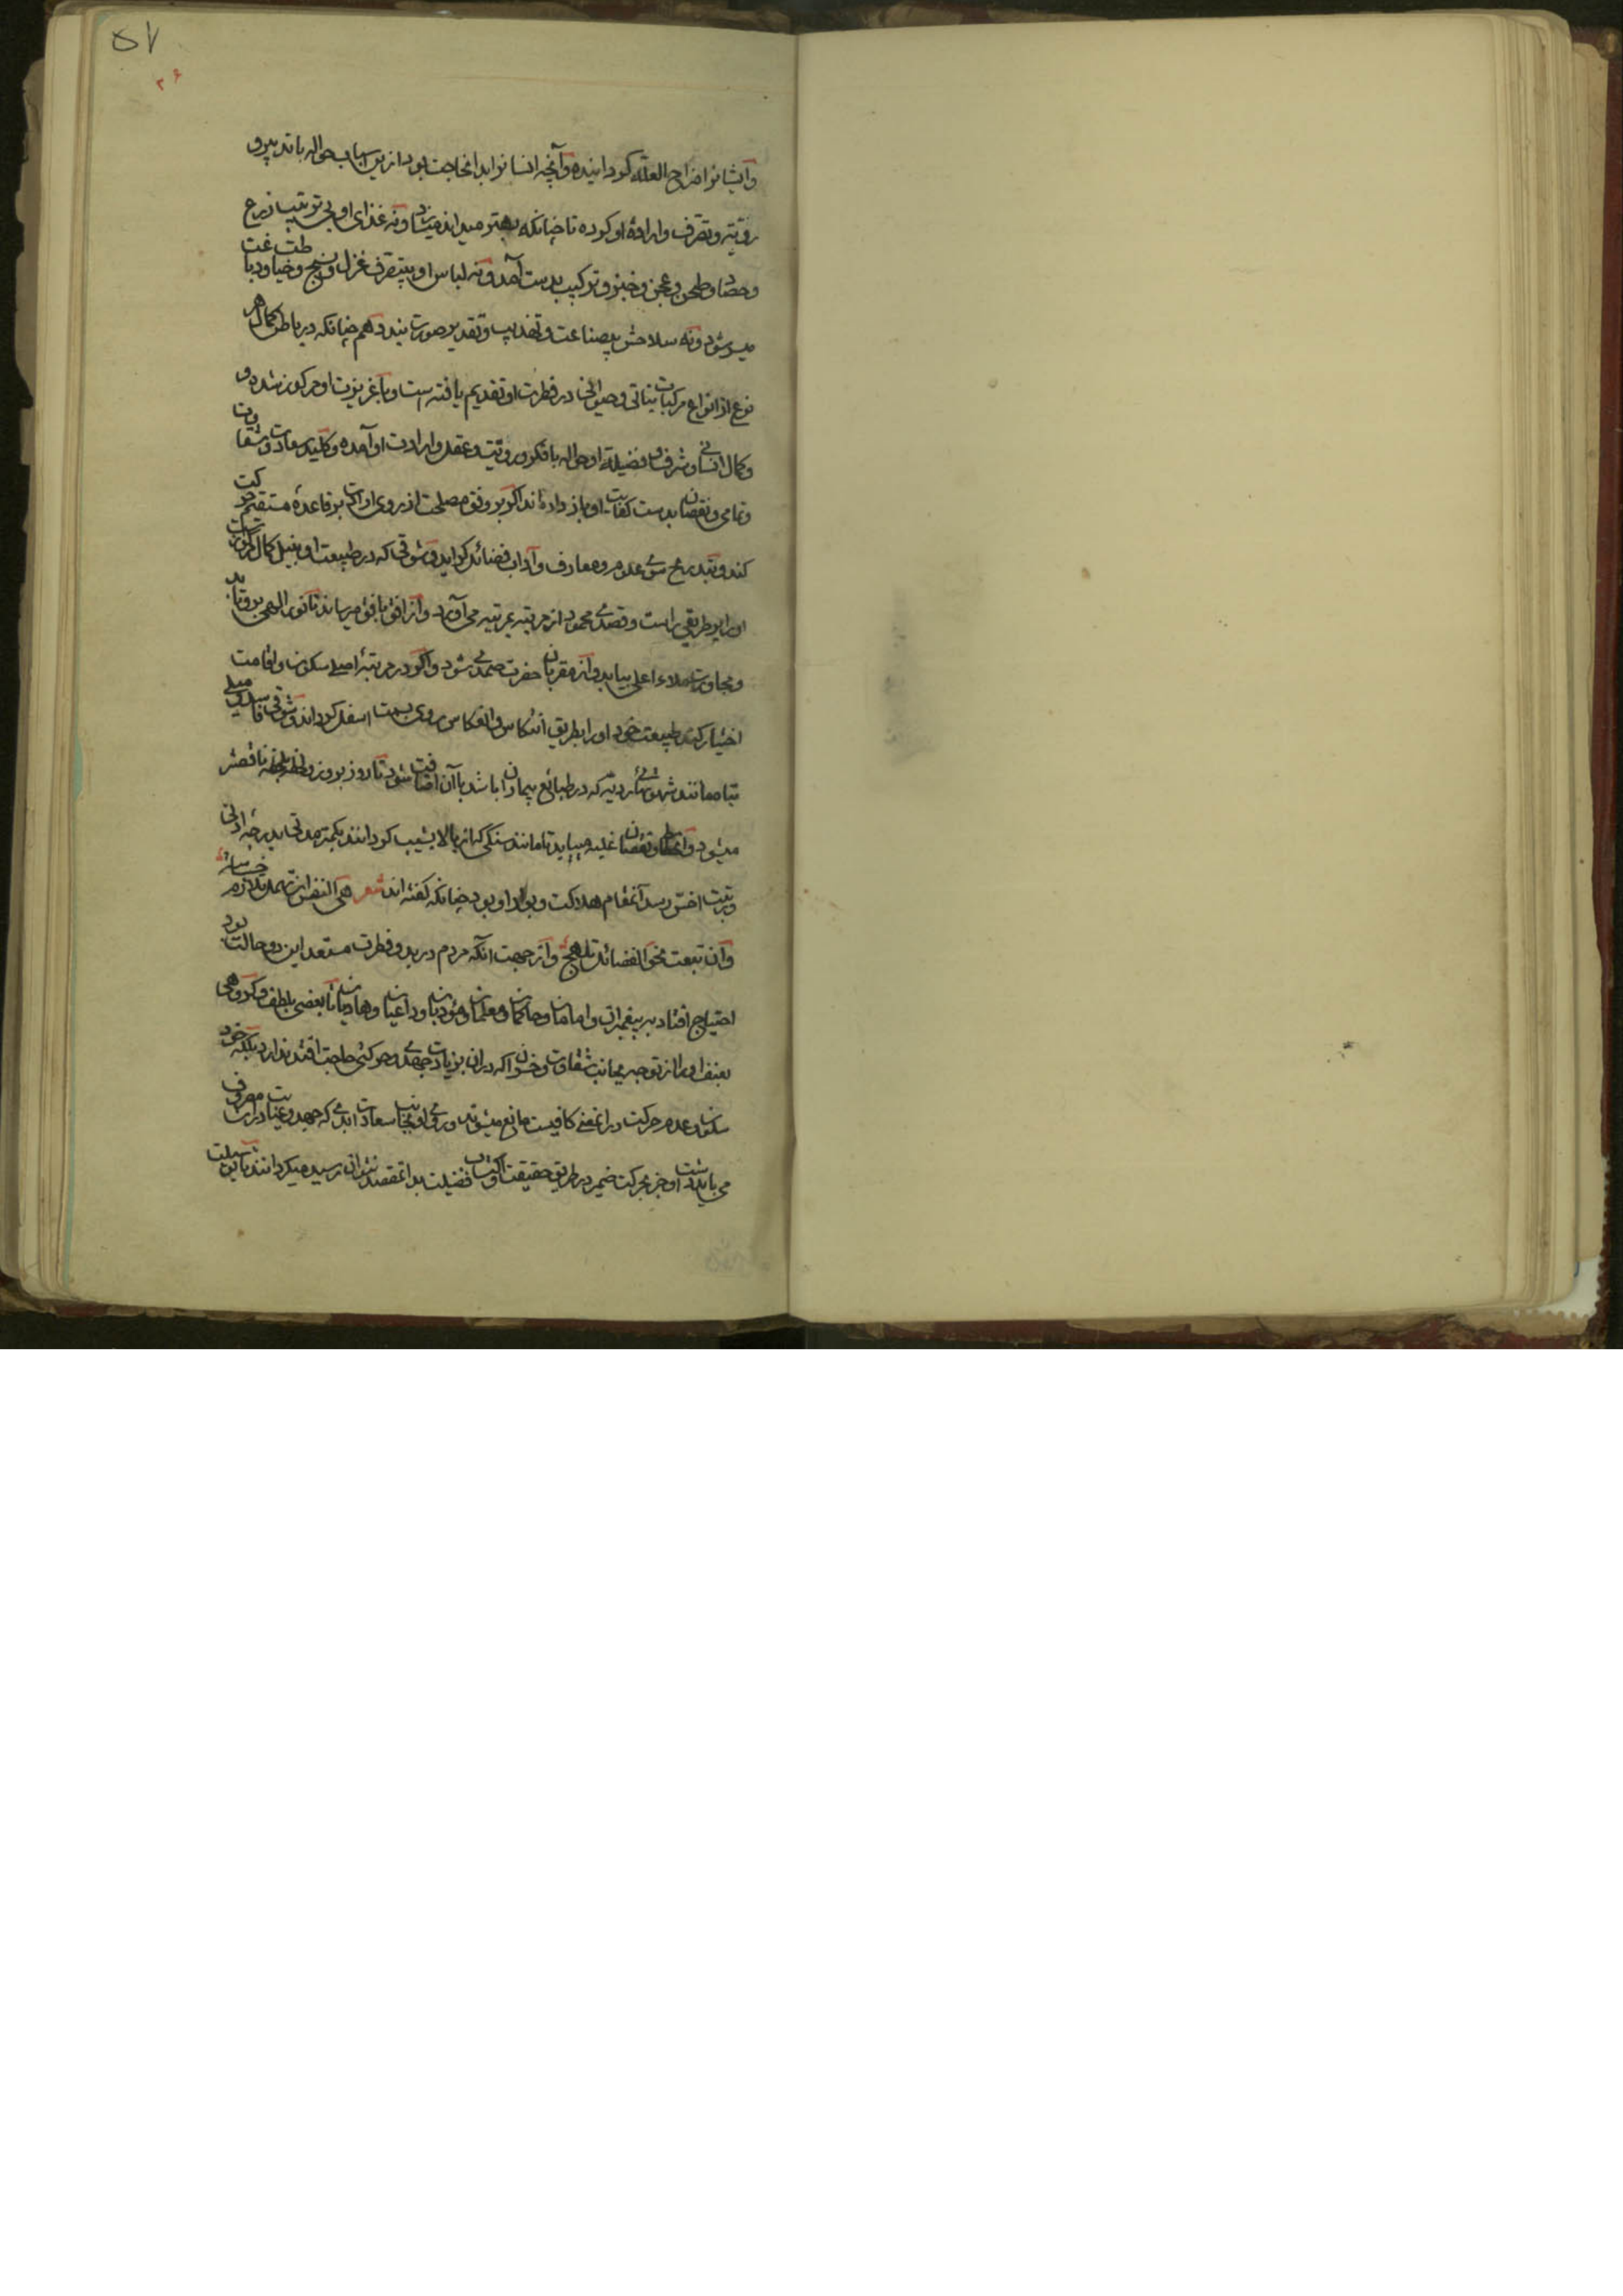 ۵۷
۳۶
وایشانرا مزاح العلة کردانیده وآنچه انسانرا بدان حاجت بود ازین اسباب حواله با تدبیر و
رویّت وتصرف وارادهٔ او کرده تا چنانکه بهتر میداند میسازد ونه غذای او بی ترتیب زرع
وحصاد وطحن وعجن وخبز وترکیب بدست آمد ونه لباس او بی تصرف غزل ونسج وخیاطت ودباغت
میسر شود ونه سلاحش بی صناعت وتهذیب وتقدیر صورت بندد همچنانکه در باطن کمال هر
نوع از انواع مرکبات نباتی وحیوانی در فطرت او تقدیم یافته است وبا غریزت او مرکوز شده و
وکمال انسانی وشرف وفضیلة او حواله با فکر ورویّت وعقل وارادت او آمده وکلید سعادت وشقاوت
وتمامی ونقصان بدست کفایت او باز داده اند اکر بر وفق مصلحت از روی ارادت بر قاعدهٔ مستقیم حرکت
کند وبتدریج سوی علوم ومعارف وآداب وفضائل کراید وشوقی که در طبیعت او بنیل کمال مرکوزست
اورا بر طریقی راست وقصدی محمود از مرتبه بمرتبه می آورد واز افق بافق میرساند تا نور الهی برو تابد
ومجاورت ملاء اعلی بیابد واز مقربان حضرت صمدی شود واکر در مرتبهٔ اصلی سکون واقامت
اختیار کند طبیعت خود اورا بطریق انتکاس وانعکاس روی بسمت اسفل کرداند وشوقی فاسد ومیلی
تباه مانند شهوتهای ردیّه که در طبائع بیماران باشد با آن اضافت شود تا روز بروز ولحظه بلحظه ناقصتر
میشود وانحطاط ونقصان غلبه مییابد تا مانند سنکی که از بالا بشیب کردانند بکمتر مدتی بدرجهٔ ادنی
ورتبت اخسّ رسد آنمقام هلاکت وبوار او بود چنانکه کفته اند شعر هی النفس ان تهمل تلازم خساسة
وان تبعث نحو الفضائل تلهج واز جهت آنکه مردم در بدو فطرت مستعد این دو حالت بود
احتیاج افتاد به پیغمبران وامامان وحاکمان ومعلمان ومؤدبان وداعیان وهادیان تا بعضی بلطف وکروهی
بعنف اورا از توجه بجانب شقاوت وخسران که در ان بزیادت جهدی وحرکتی حاجت افتد ندارد بلکه خود
سکون وعدم حرکت در آنمعنی کافیست مانع میشوند وروی او بجانب سعادت ابدی که جهد وعنایت مصروف
می باید داشت او جز بحرکت ضمیر در طریق حقیقت واکتساب فضیلت بدان مقصد نتوان رسید میکردانند تا بوسیلت